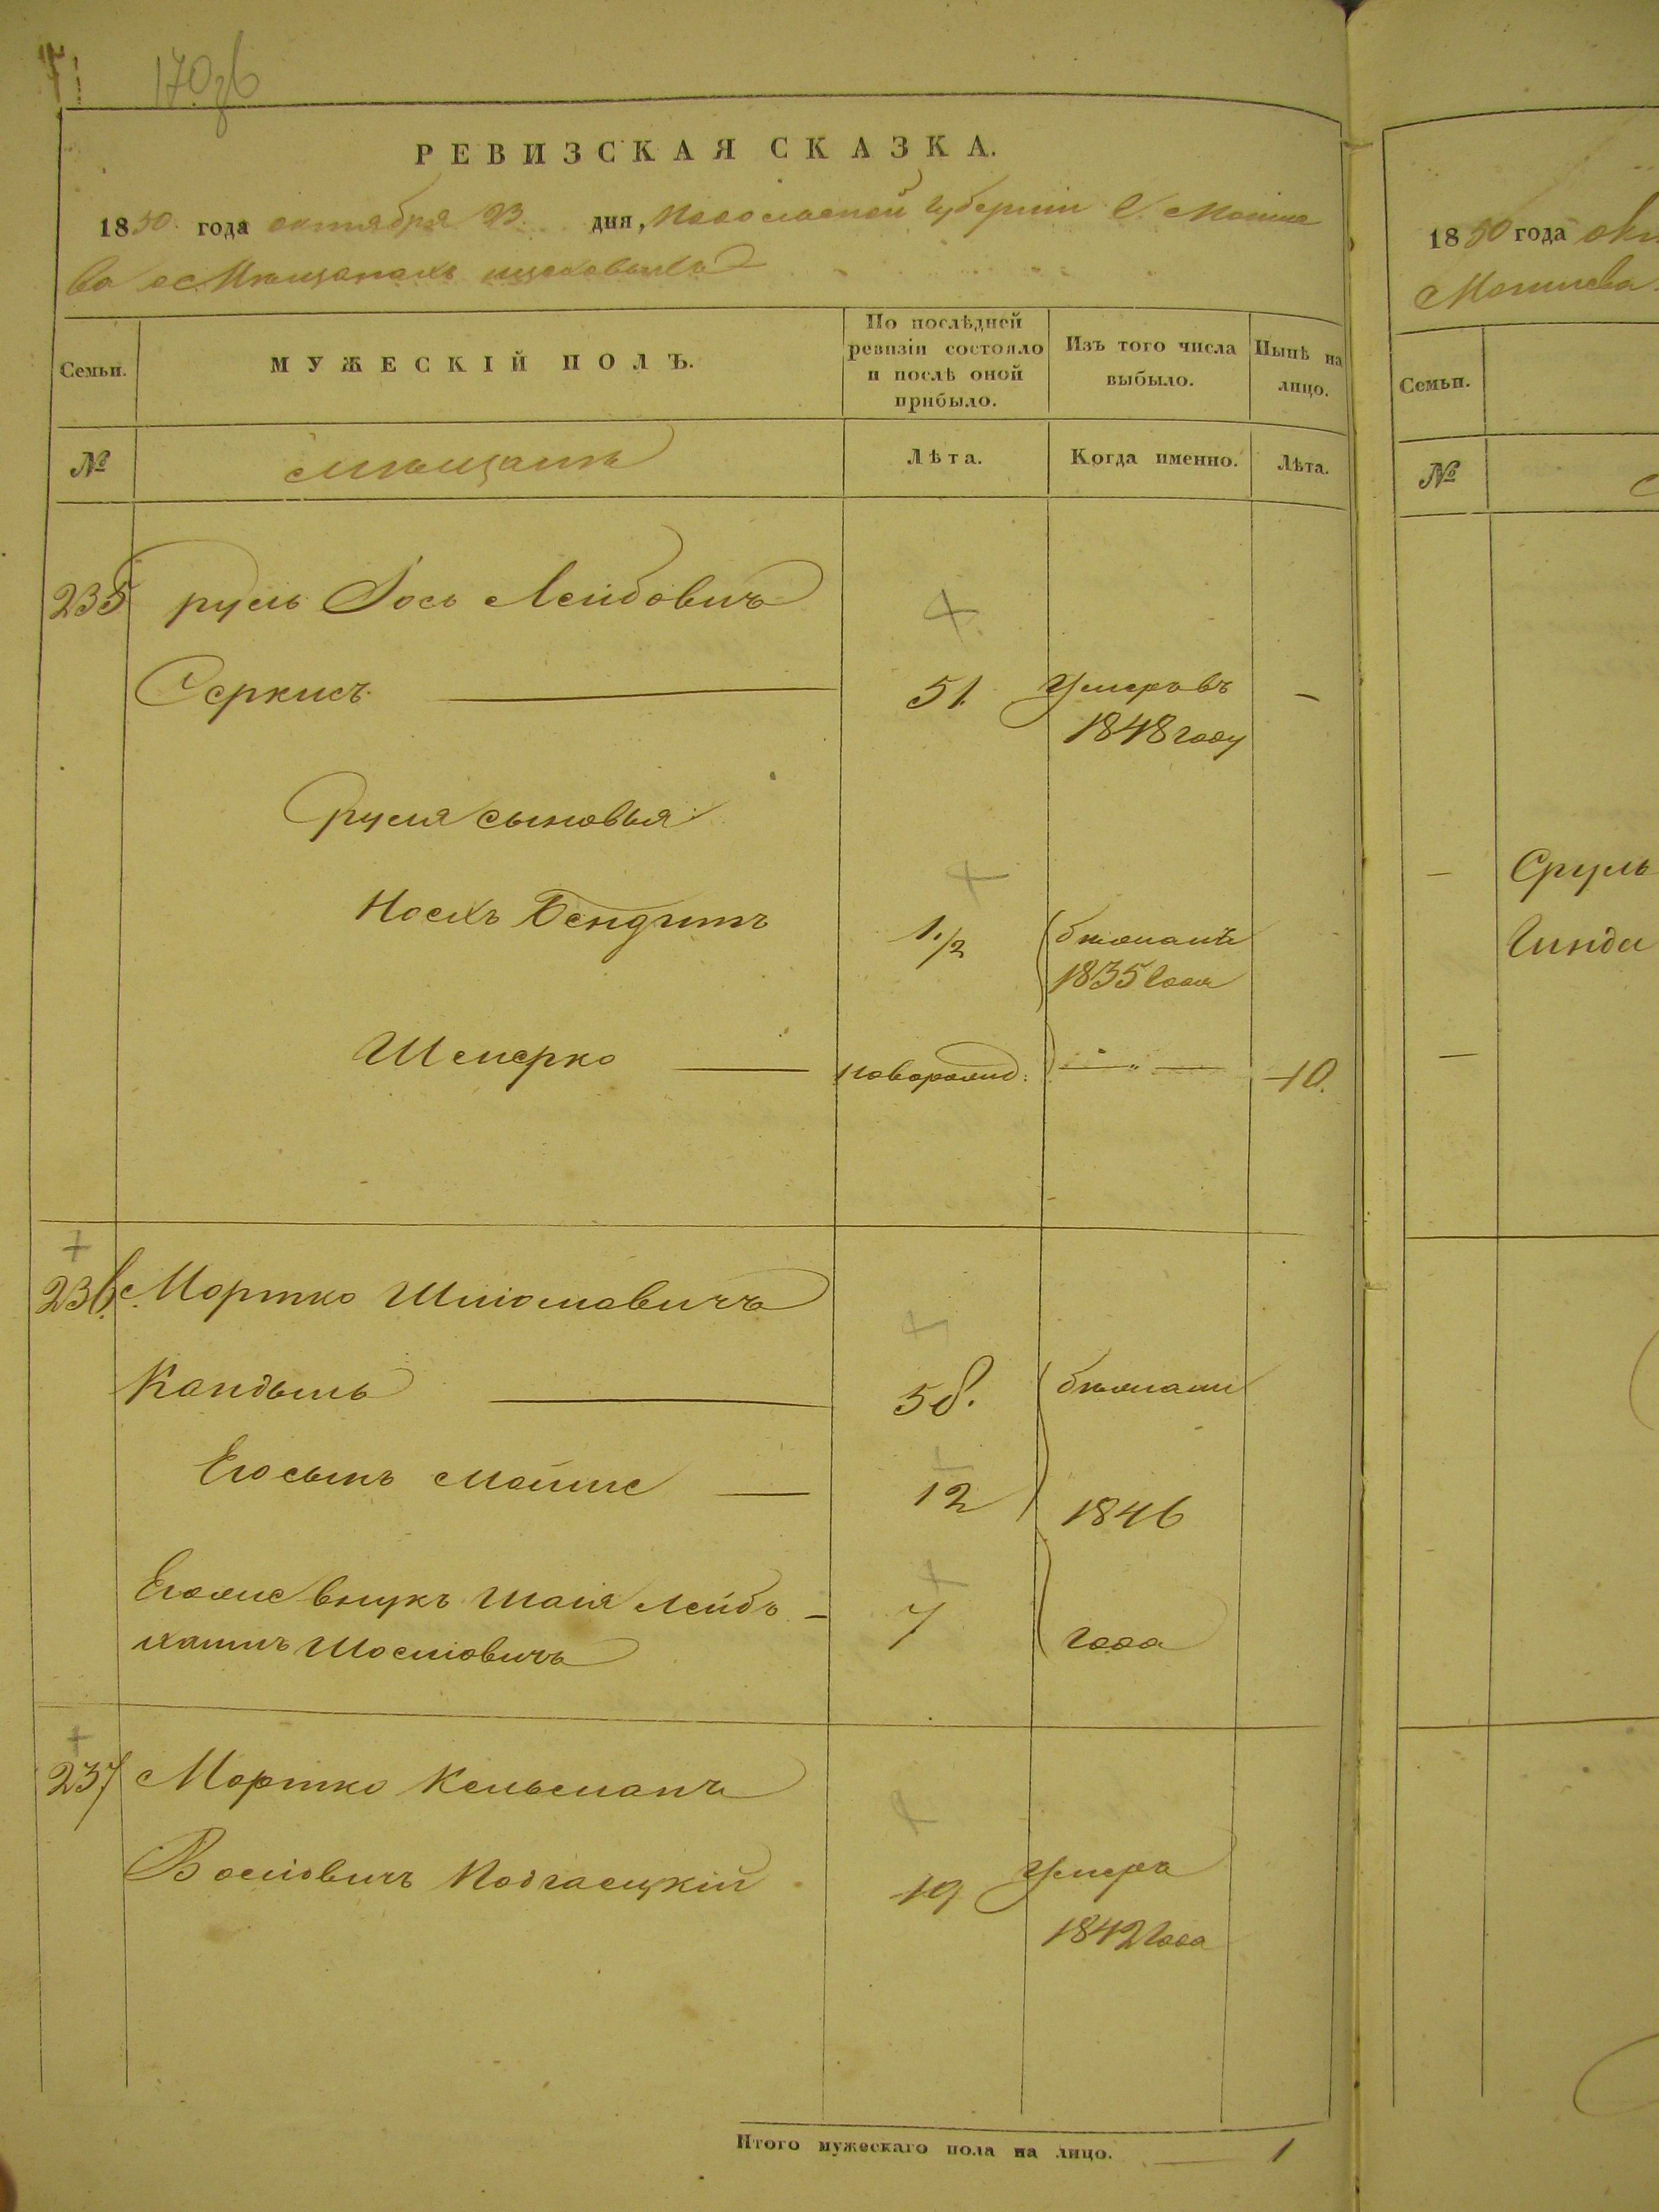 170об
РЕВИЗСКАЯ СКАЗКА.
1850. года октября 23. дня, Подольской Губерніи г. Могиле
ва о Мѣщанахъ
Семьи.
МУЖЕСКІЙ ПОЛЪ.
По послѣдней ревизіи состояло и послѣ оной прибыло.
Изъ того числа выбыло.
Нынѣ на лицо.
№
мѣщанъ
Лѣта.
Когда именно.
Лѣта.
235 Сруль Іось Лейбовичъ
Серкисъ 51. Умеръ въ –
1848 году
Сруля сыновья
Носихъ Бендитъ 1/2 бѣжалъ
1835 года
Шмерко новорожд: — „ — 10.
236. Мортко Шліомовичъ
Кандыль 58. бѣжали
Его сынъ Мошко 12 1846
Егоже внукъ Шаія Лейбъ – 7 года
Шосліовичъ
237 Мортко Кельманъ
Вослiовичъ Подгаецкій 19 Умеръ
1842 года
Итого мужескаго пола на лицо. 1
1850 года
Могилева
Семьи.
№
— Сруль
Гинда
—